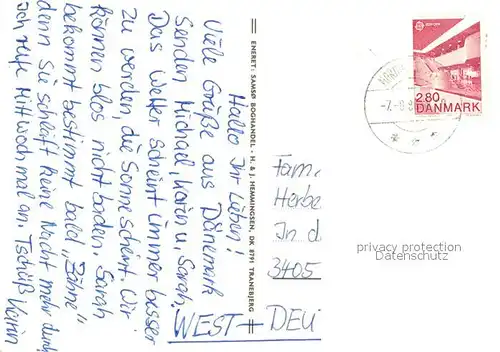 Hallo Ihr Lieben!
Viele Grüße aus Dänemark
Senden Michael, Karin u. Sarah.
Das Wetter scheint immer besser
zu werden, die Sonne scheint. Wir
können blos nicht baden. Sarah
bekommt bestimmt bald „Zähne"
denn Sie schläft keine Nacht mehr durch
ich rufe Mittwoch mal an. Tschüß Karin
ENERET: SAMSØ BOGHANDEL · H. & J. HEMMINGSEN, DK 8791 TRANEBJERG
EUROPA
2.80
DANMARK
Fam.
Herbe
In d
3405
WEST + DEU
privacy protection
Datenschutz